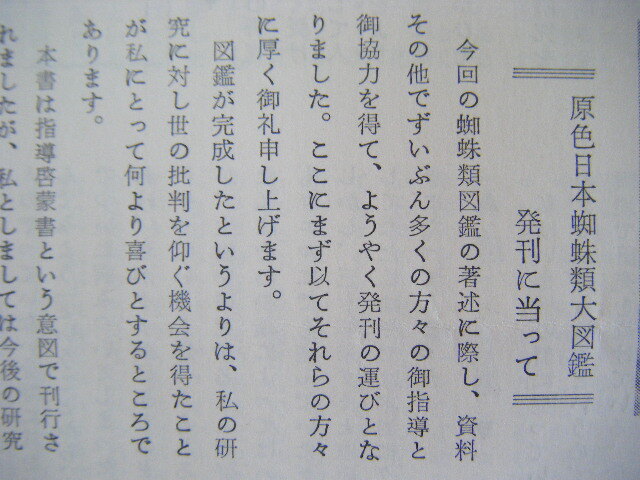 原色日本蜘蛛類大図鑑
発刊に当って
今回の蜘蛛類図鑑の著述に際し、資料
その他でずいぶん多くの方々の御指導と
御協力を得て、ようやく発刊の運びとな
りました。ここにまず以てそれらの方々
に厚く御礼申し上げます。
図鑑が完成したというよりは、私の研
究に対し世の批判を仰ぐ機会を得たこと
が私にとって何より喜びとするところで
あります。
本書は指導啓蒙書という意図で刊行さ
れましたが、私としましては今後の研究